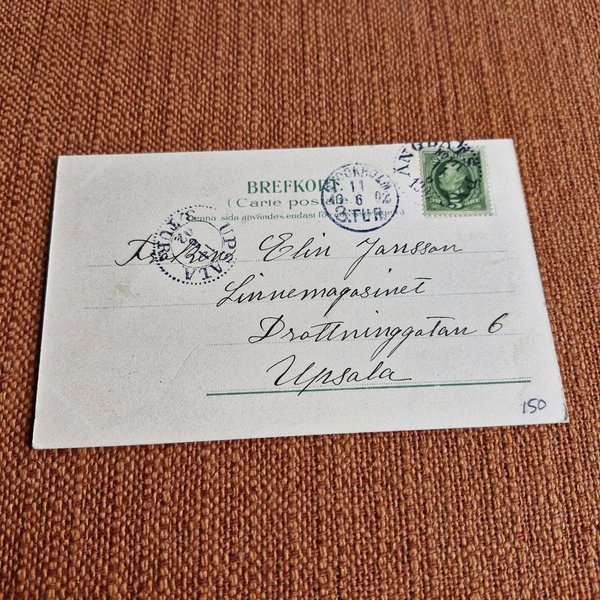 BREFKORT
(Carte postale)
Denna sida användes endast för
STOCKHOLM
11
10 6 02
3.TUR
ÅNGBÅTS
UPSALA
TUR
Elin Jansson
Linnemagasinet
Drottninggatan 6
Upsala
150